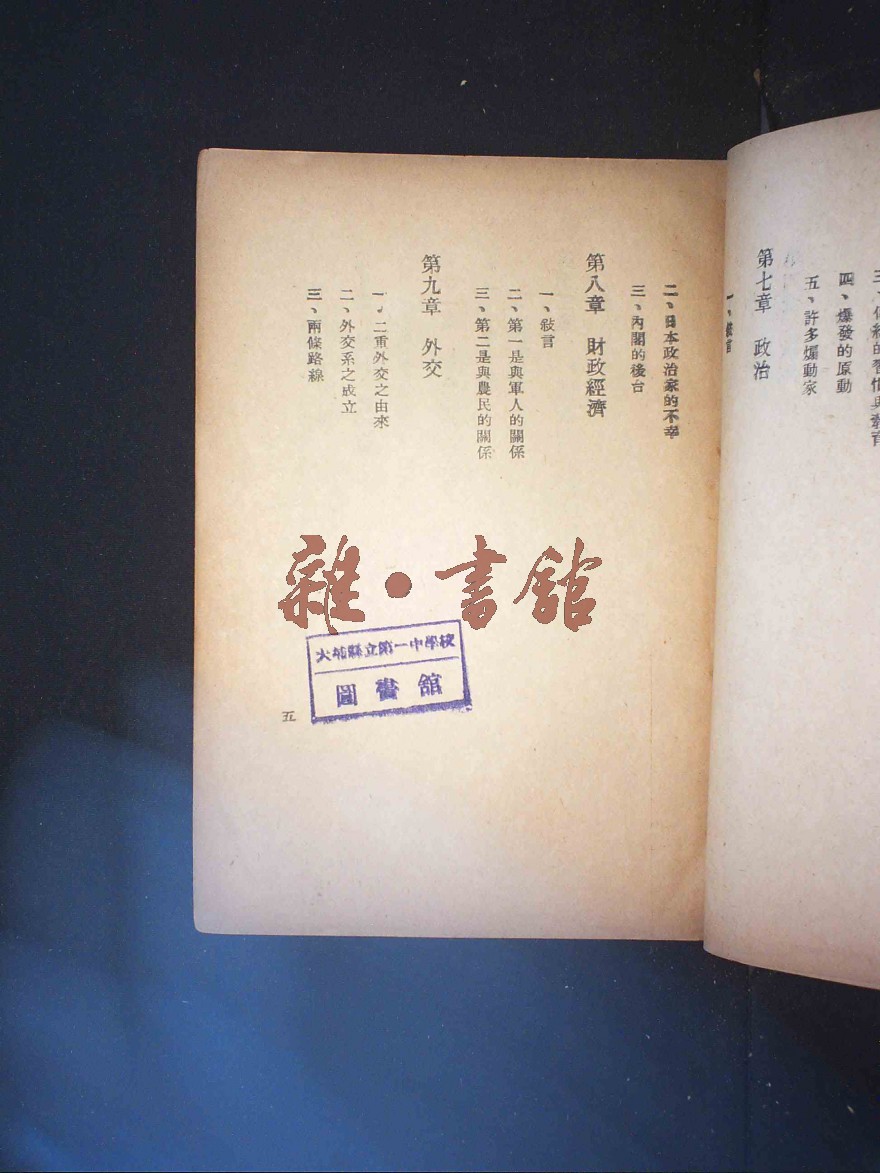 四、爆發的原動
五、許多煽動家
第七章 政治
一、敍言
二、日本政治家的不幸
三、內閣的後台
第八章 財政經濟
一、敍言
二、第一是與軍人的關係
三、第二是與農民的關係
第九章 外交
一、二重外交之由來
二、外交系之成立
三、兩條路線
五
雜·書館
縣立第一中學校
圖書館